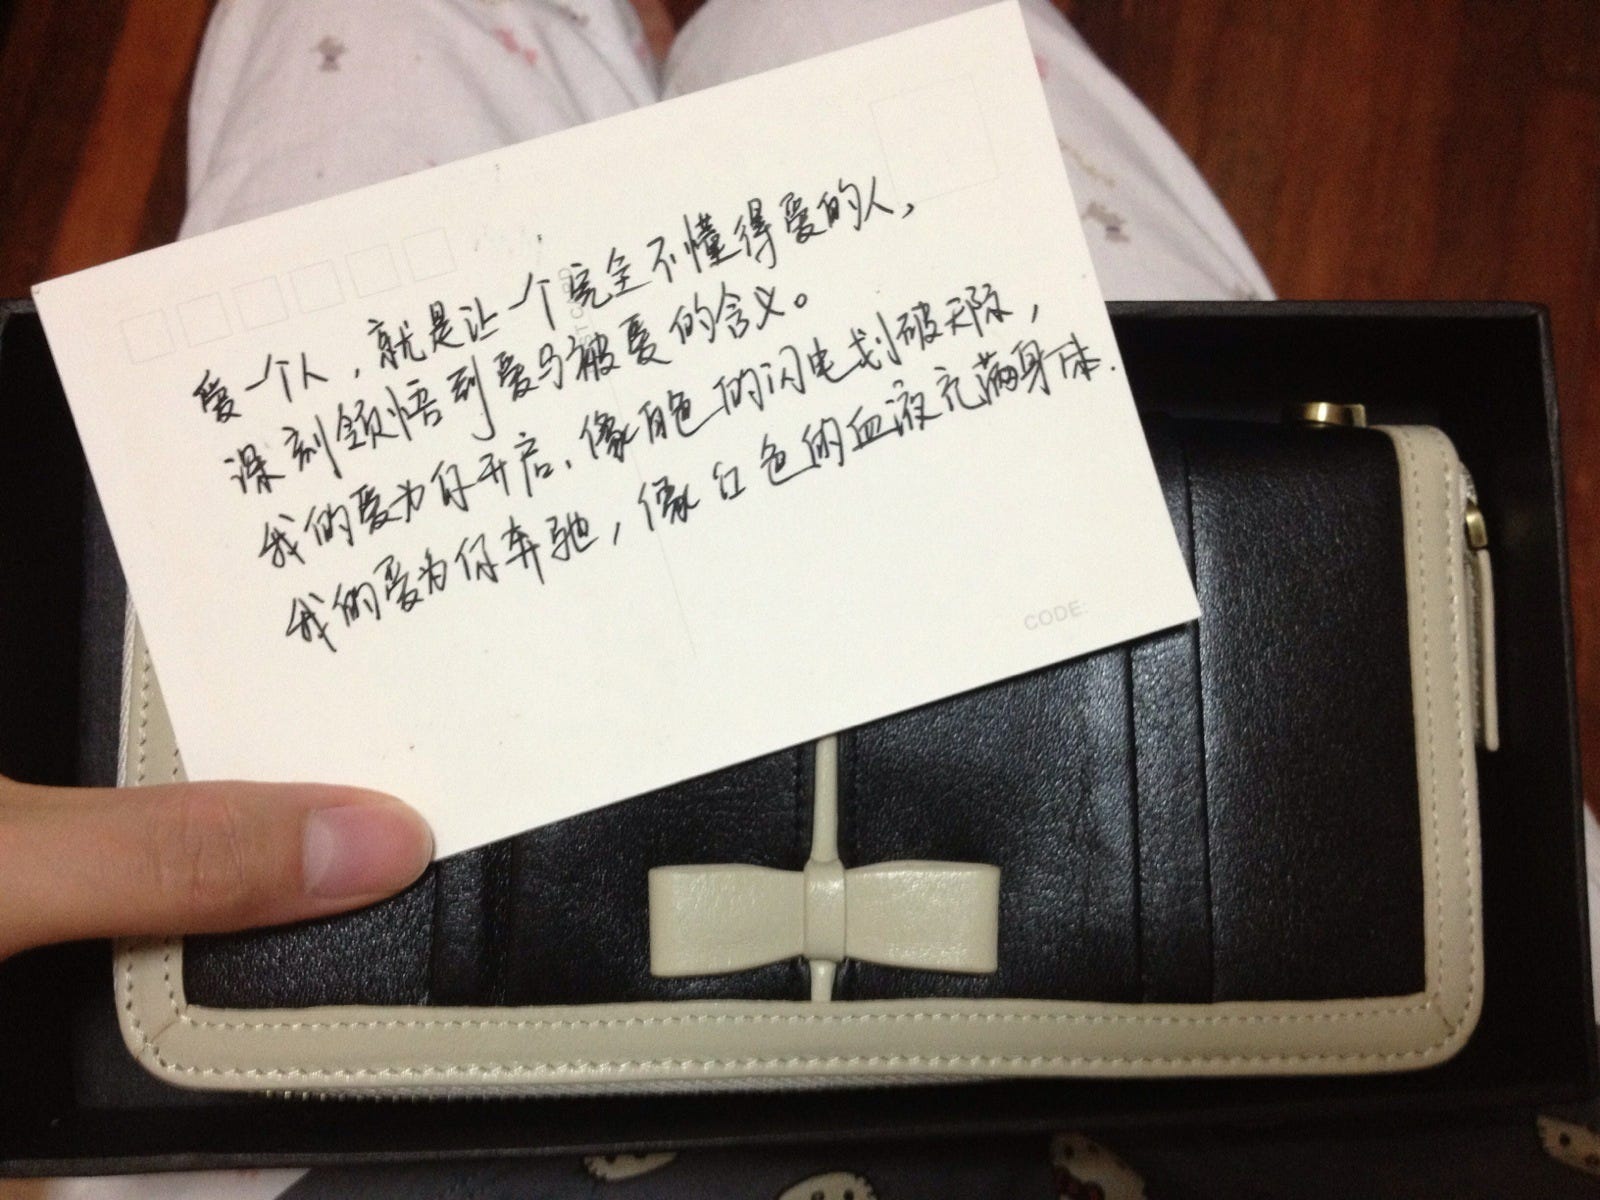 爱一个人，就是让一个完全不懂得爱的人，
深刻领悟到爱与被爱的含义。
我的爱为你开启，像白色的闪电划破天际，
我的爱为你奔驰，像红色的血液充满身体.
CODE: